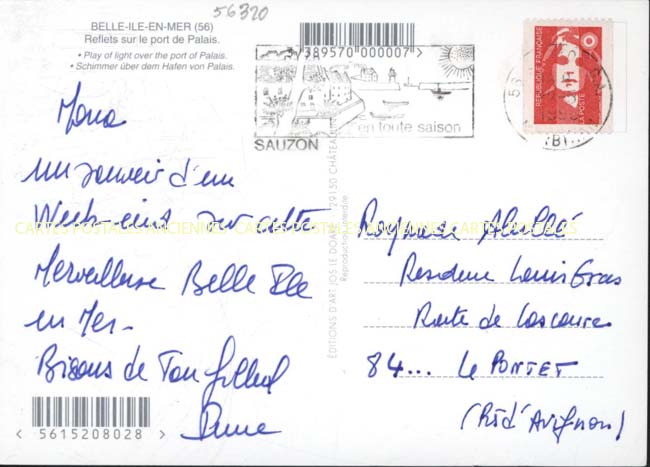 56320
BELLE-ILE-EN-MER (56)
Reflets sur le port de Palais.
• Play of light over the port of Palais.
• Schimmer über dem Hafen von Palais.
389570 000007
en toute saison
SAUZON
REPUBLIQUE FRANÇAISE
LA POSTE
un souvenir d'un
Week-end sur cette
Merveilleuse Belle Ile
en Mer -
Bisous de Ton
CARTES POSTALES ANCIENNES CARTES POSTALES ANCIENNES CARTES POSTALES
5615208028
EDITIONS D'ART JOS LE DOARÉ - 29150 CHÂTEAU
Reproduction interdite
Residence Louis Gras
Route de
84... Le PONTET
(Rd d'Avignon)